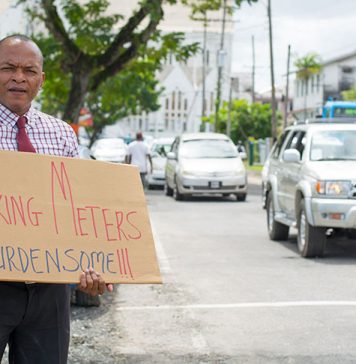 KING METERS
URDENSOME!!!